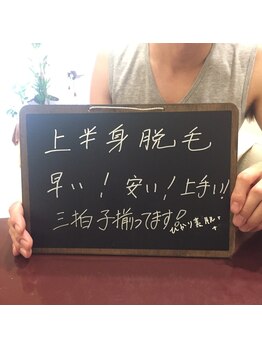 上半身脱毛
早い！ 安い！ 上手い！
三拍子揃ってます。
ぴかり美肌